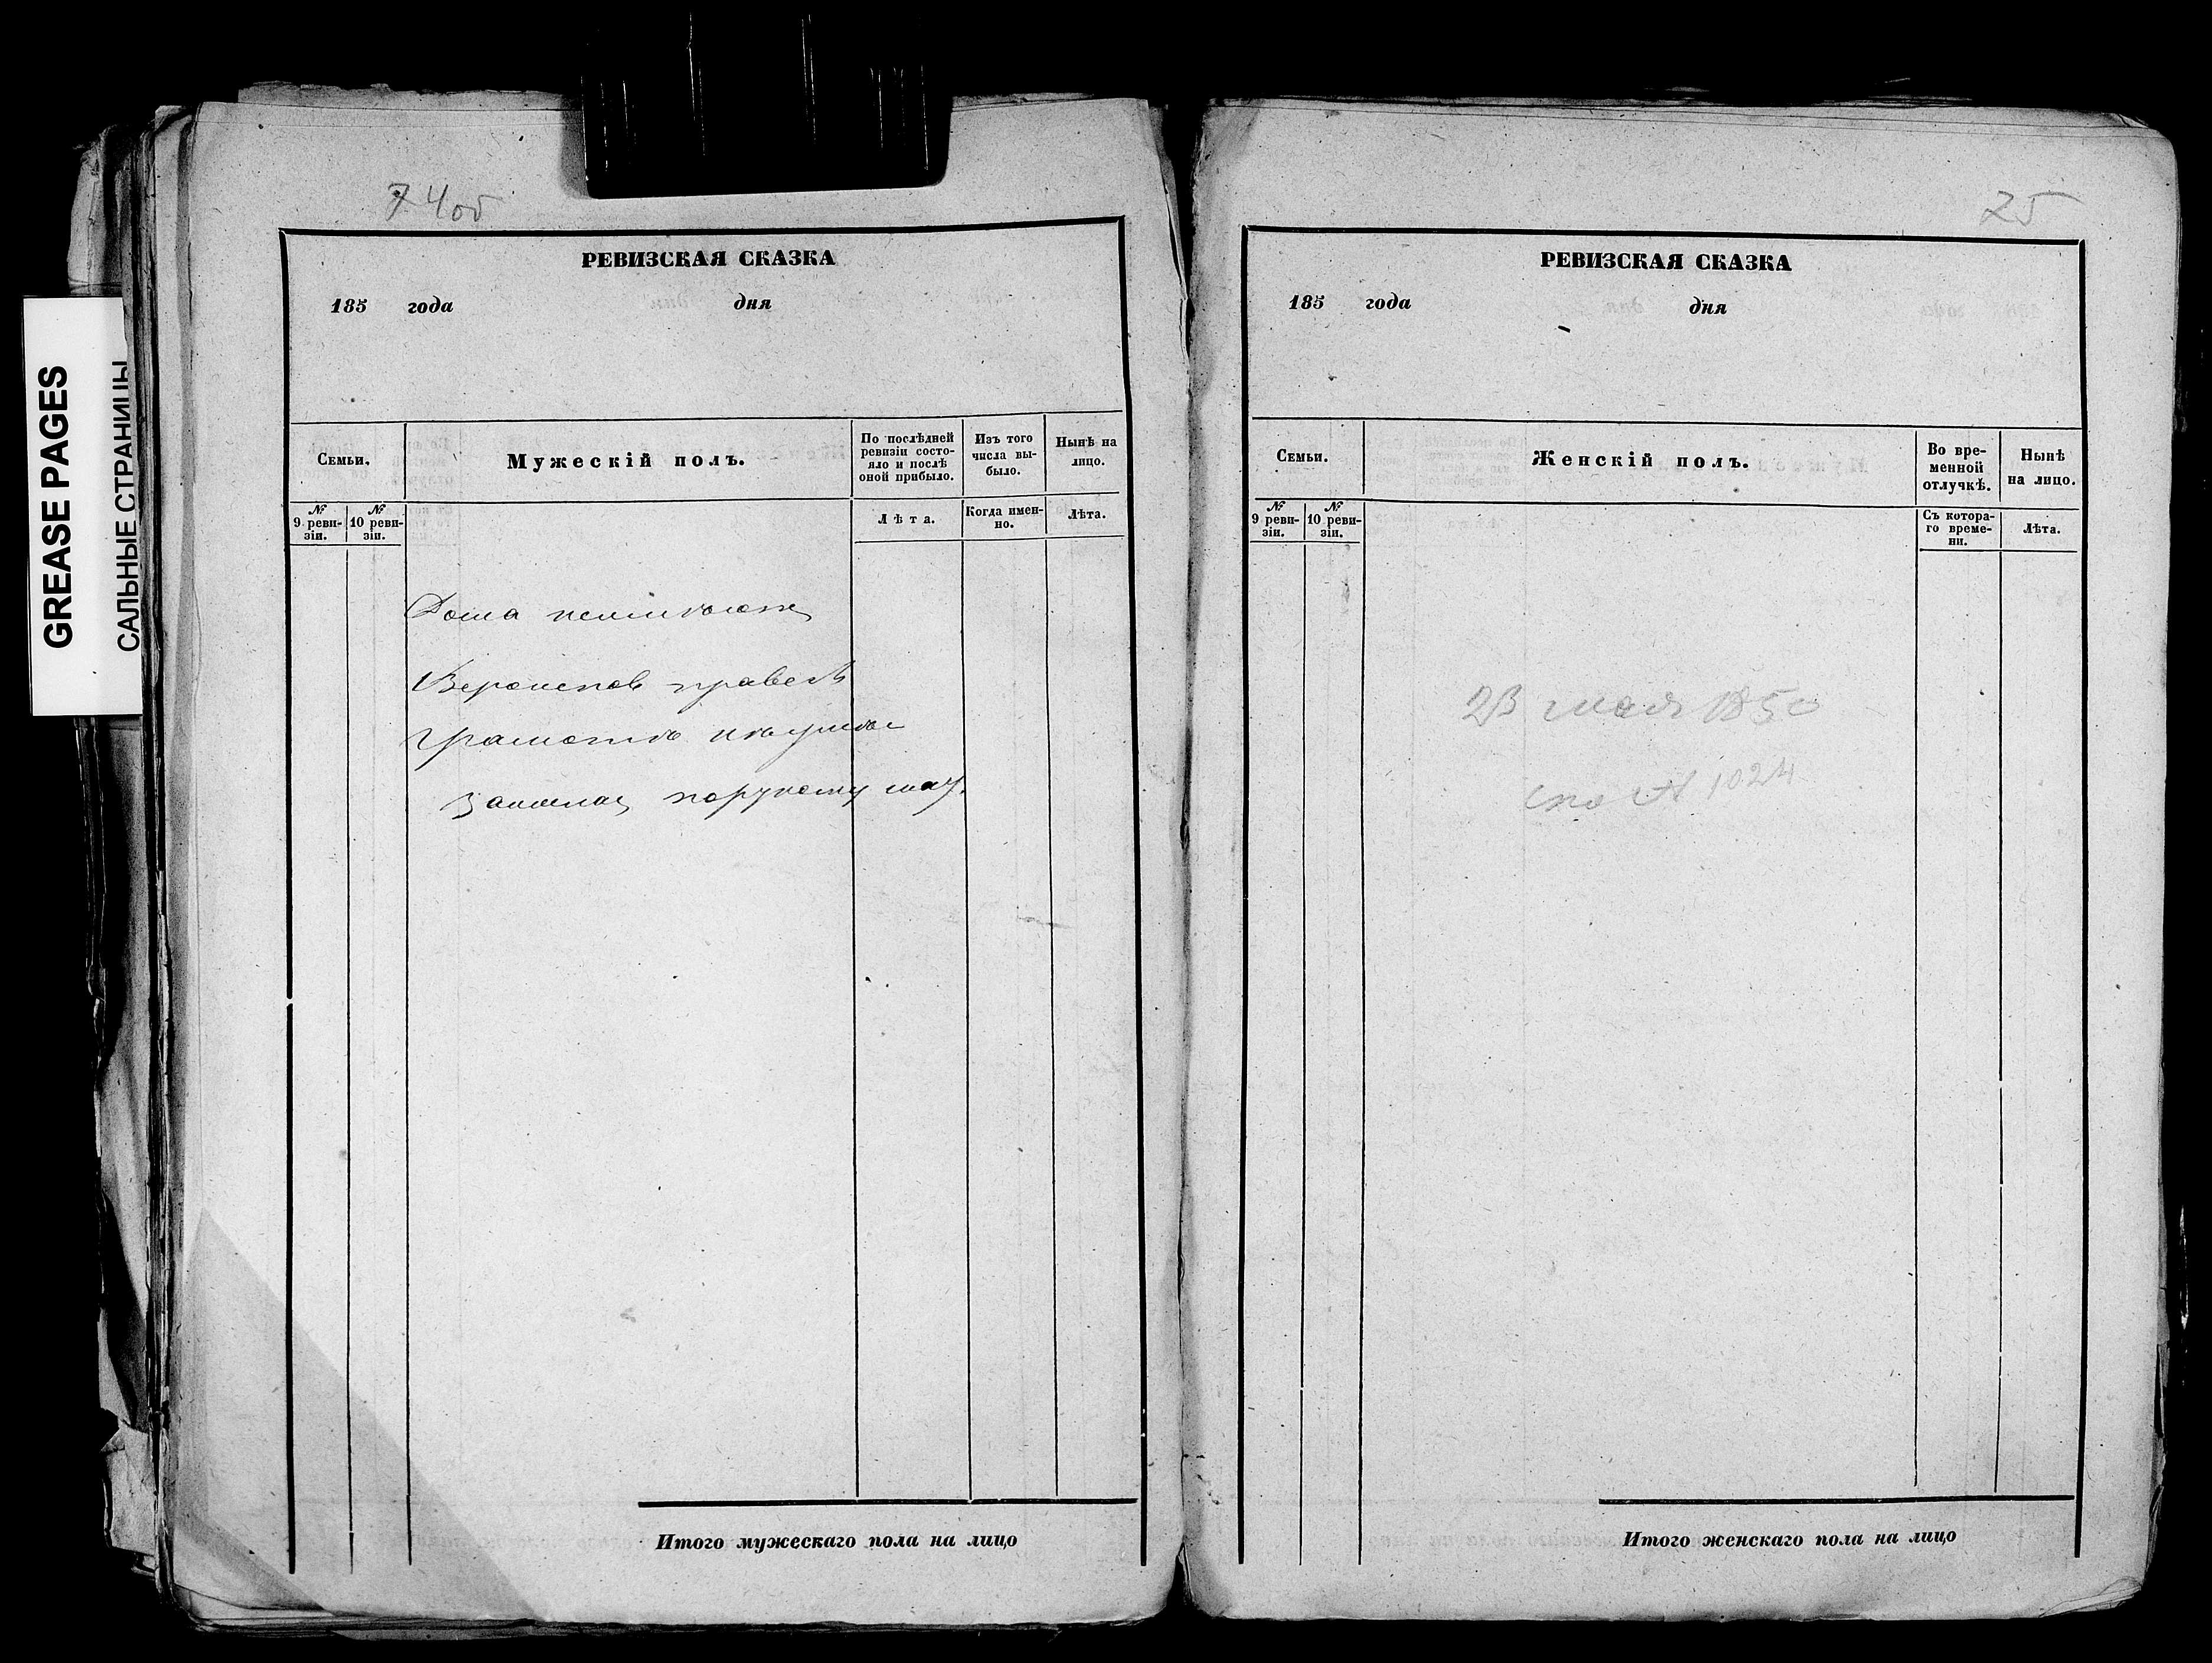 GREASE PAGES
САЛЬНЫЕ СТРАНИЦЫ
74об
РЕВИЗСКАЯ СКАЗКА
185 года дня
Семьи.
Мужескій полъ.
По послѣдней ревизіи состо-
яло и послѣ
оной прибыло.
Изъ того
числа вы-
было.
Нынѣ на
лицо.
№
9 реви-
зіи.
№
10 реви-
зіи.
Лѣта.
Когда имен-
но.
Лѣта.
грамотѣ
Итого мужескаго пола на лицо
75
РЕВИЗСКАЯ СКАЗКА
185 года дня
Семьи.
Женскій полъ.
Во вре-
менной
отлучкѣ.
Нынѣ
на лицо.
№
9 реви-
зіи.
№
10 реви-
зіи.
Съ котора-
го време-
ни.
Лѣта.
мая 185
№ 1024
Итого женскаго пола на лицо